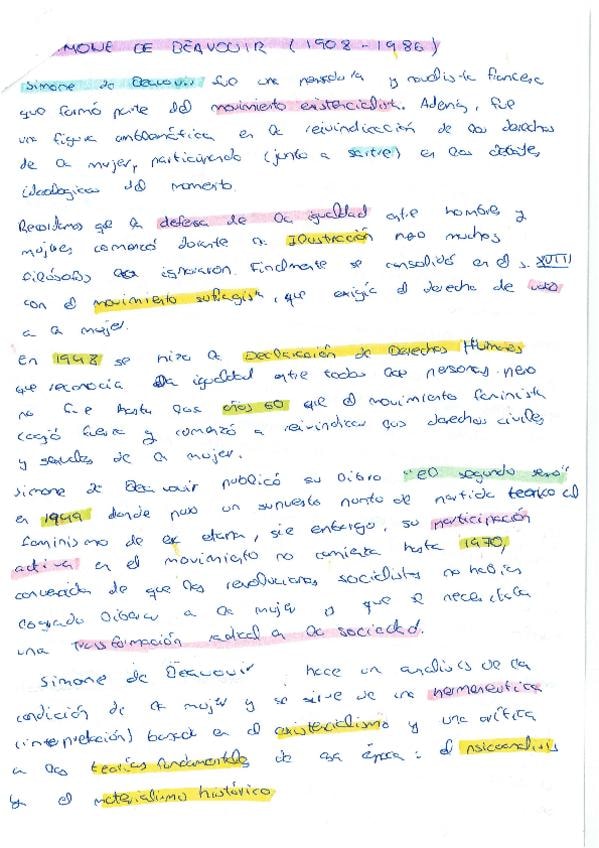 MONE DE BEAVOUIR (1908 - 1986)
Simone de Beauvoir fue una pensadora y novelista francesa
que formó parte del movimiento existencialista. Además, fue
una figura emblemática en la reivindicación de los derechos
de la mujer, participando (junto a Sartre) en los debates
ideológicos del momento.
Recordemos que la defensa de la igualdad entre hombre y
mujeres comenzó durante la Ilustración pero muchos
filósofos la ignoraron. Finalmente se consolidó en el s. XVIII
con el movimiento sufragista, que exigía el derecho de voto
a la mujer.
En 1948 se hizo la Declaración de Derechos Humanos
que reconocía la igualdad entre todas las personas pero
no fue hasta los años 60 que el movimiento feminista
cogió fuerza y comenzó a reivindicar los derechos civiles
y sexuales de la mujer.
Simone de Beauvoir publicó su libro "el segundo sexo"
en 1949 donde puso un supuesto punto de partida teórico al
feminismo de esa etapa, sin embargo, su participación
activa en el movimiento no comienza hasta 1970,
convencida de que las revoluciones socialistas no habían
logrado liberar a la mujer y que se necesitaba
una transformación radical en la sociedad.
Simone de Beauvoir hace un análisis de la
condición de la mujer y se sirve de una hermeneútica
(interpretación) basada en el existencialismo y una crítica
a las teorías fundamentales de esa época: el psicoanálisis
y el materialismo histórico.